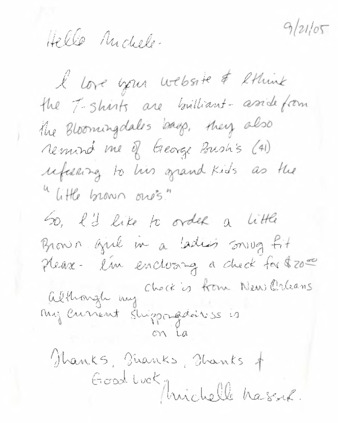 9/21/05
Hello Michele.
I love your website & think
the T-shirts are brilliant - aside from
the Bloomingdales bags, they also
remind me of George Bush's (41)
referring to his grand kids as the
"little brown one's."
So, I'd like to order a Little
Brown girl in a ladies snug fit
please - I'm enclosing a check for $20.00
Although my check is from New Orleans
my current shipping address is
on
Thanks, Thanks, Thanks &
Good Luck
Michelle